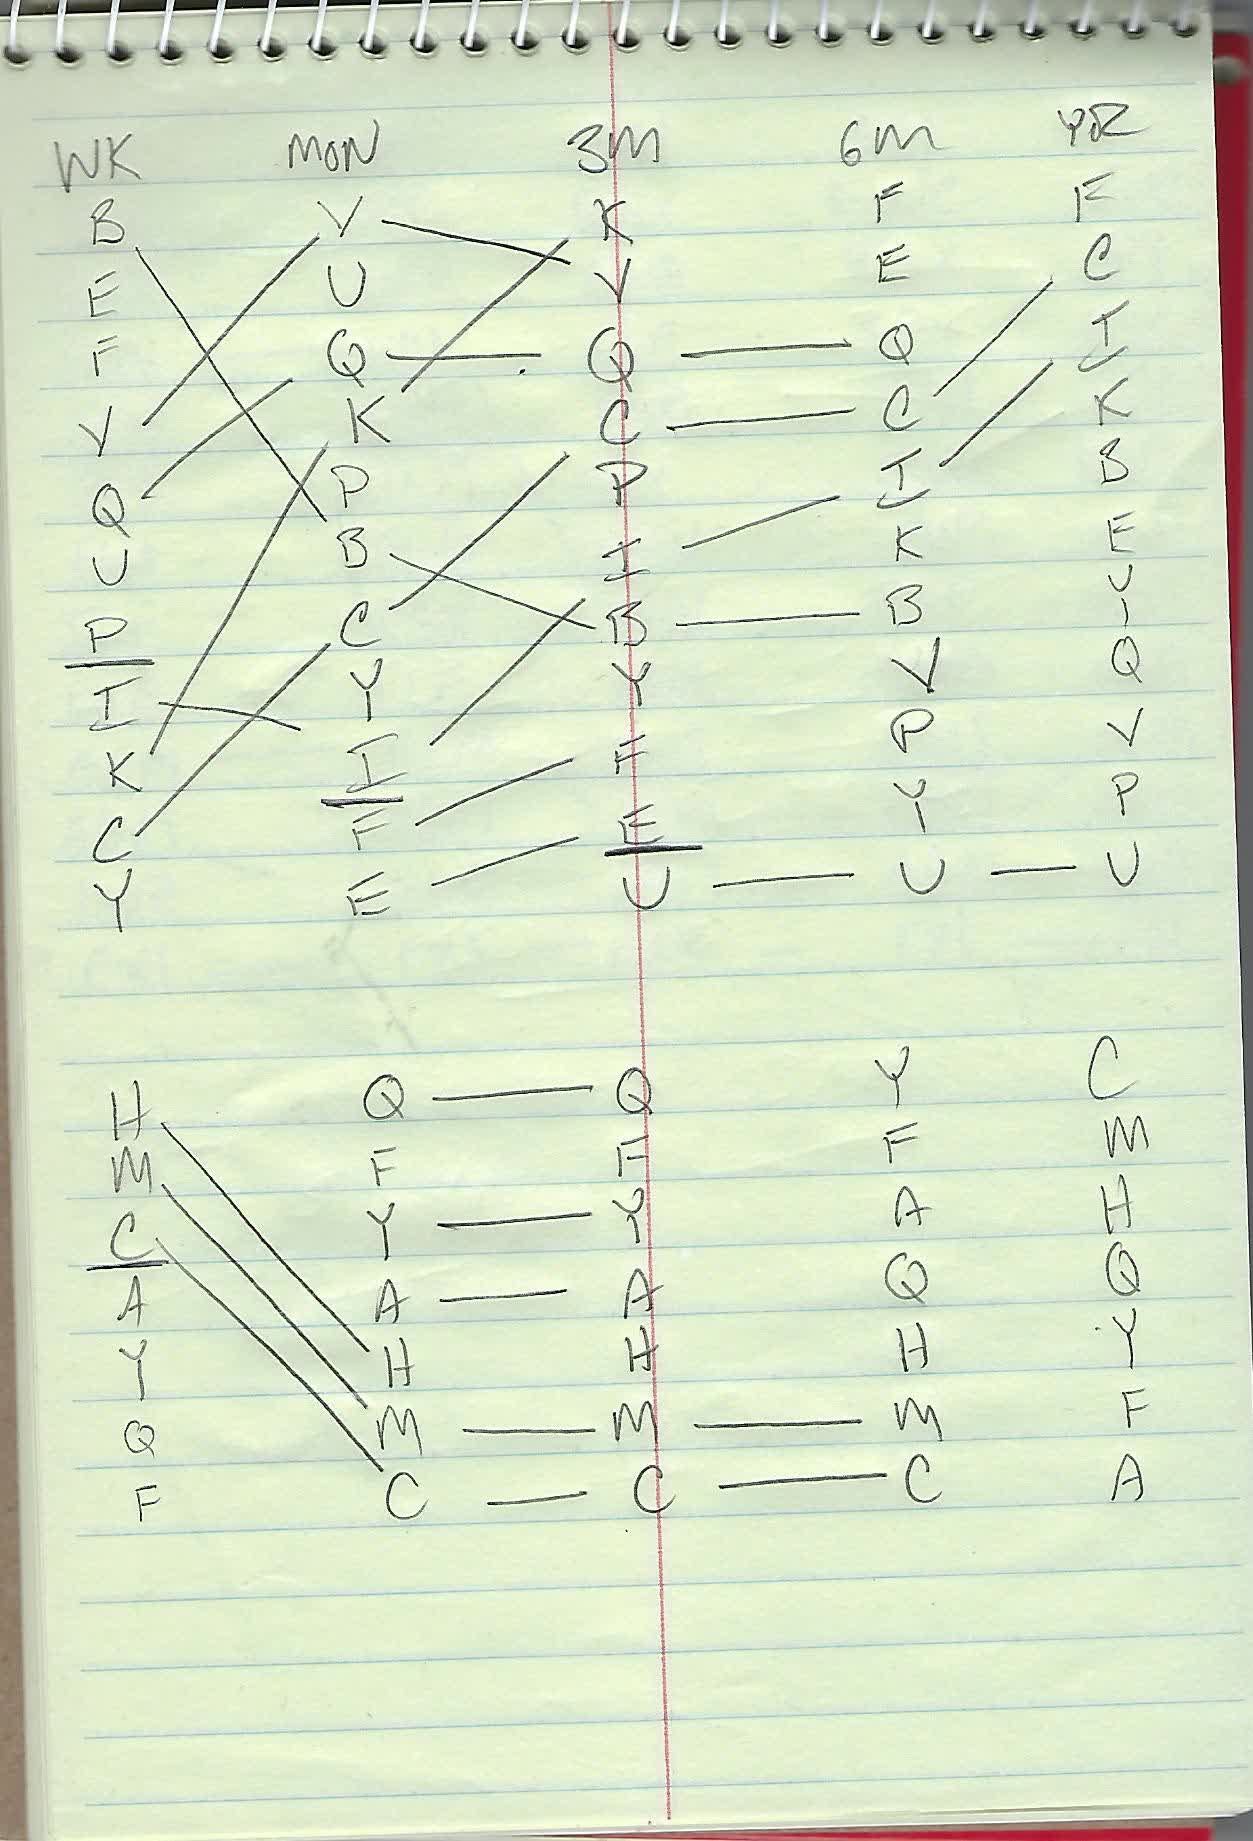 WK MON 3M 6M YR
B V K F F
E U V E C
F Q Q Q I
V K C C K
Q P P I B
U B I K E
P C B B Y
I Y Y V Q
K I F P V
C F E Y P
Y E U U U
H Q Q Y C
M F F F M
C Y Y A H
A A A Q Q
Y H H H Y
Q M M M F
F C C C A